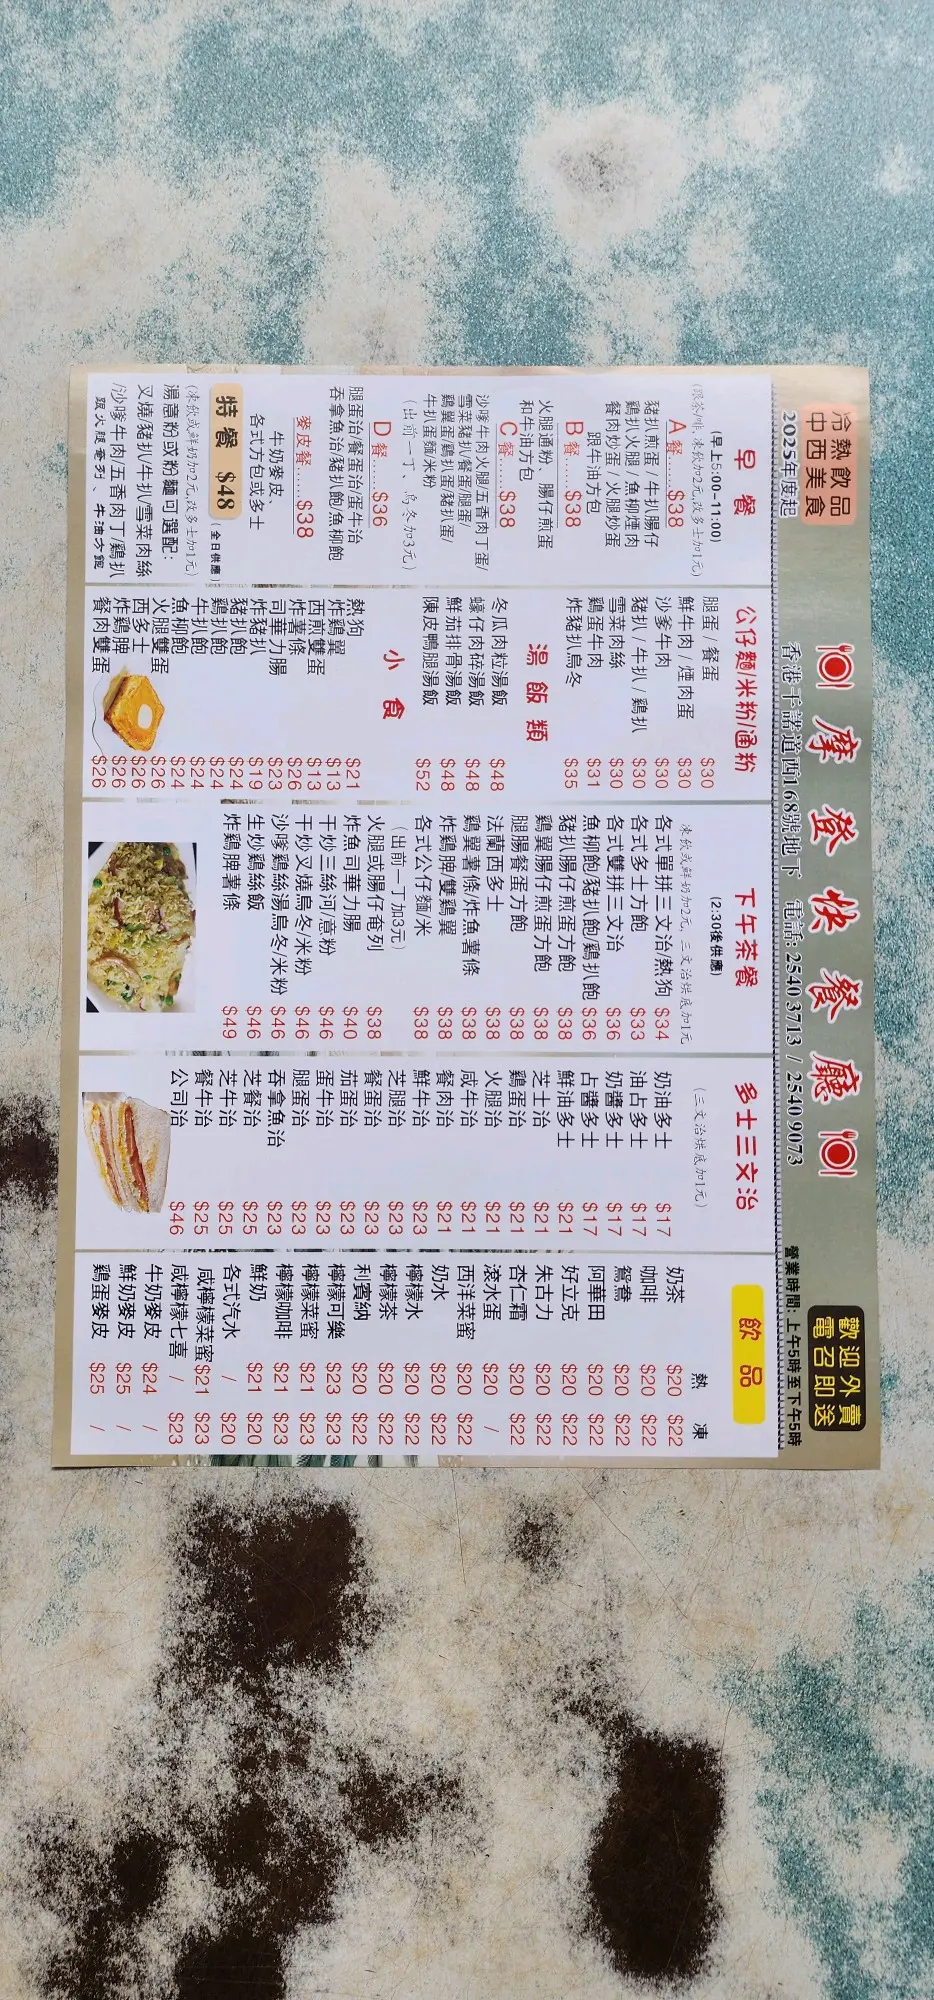 冷熱飲品
中西美食
2025年度起
摩登快餐廳
香港干諾道西168號地下 電話: 2540 3713 / 2540 9073
歡迎外賣
電召即送
營業時間: 上午5時至下午5時
早餐
(早上5:00-11:00)
(跟茶/啡 凍飲加2元,改多士加1元)
A餐......$38
豬扒煎蛋 / 牛扒腸仔
雞扒火腿 / 魚柳煙肉
餐肉炒蛋 / 火腿炒蛋
跟牛油方包
B餐......$38
火腿通粉、腸仔煎蛋
和牛油方包
C餐......$38
沙嗲牛肉火腿/五香肉丁蛋/
雪菜豬扒/餐蛋/腿蛋/
雞翼蛋/雞扒蛋/豬扒蛋/
牛扒蛋麵/米粉
(出前一丁、烏冬加3元)
D餐......$36
腿蛋治/餐蛋治/蛋牛治
吞拿魚治/豬扒飽/魚柳飽
麥皮餐......$38
牛奶麥皮、
各式方包或多士
特餐 $48 (全日供應)
(凍飲或鮮奶加2元,改多士加1元)
湯意粉或粉麵可選配:
叉燒/豬扒/牛扒/雪菜肉絲
/沙嗲牛肉/五香肉丁/雞扒
跟火腿奄列、牛油方飽
公仔麵/米粉/通粉
腿蛋 / 餐蛋 $30
鮮牛肉 / 煙肉蛋 $30
沙爹牛肉 $30
豬扒 / 牛扒 / 雞扒 $30
雪菜肉絲 $30
雞蛋牛肉 $31
炸豬扒烏冬 $35
湯飯類
冬瓜肉粒湯飯 $48
蠔仔肉碎湯飯 $48
鮮茄排骨湯飯 $48
陳皮鴨腿湯飯 $52
小食
熱狗 $21
炸雞翼 $13
西煎雙蛋 $13
炸薯條 $26
司華力腸 $23
炸豬扒 $19
豬扒飽 $24
雞扒飽 $24
牛扒飽 $24
魚柳飽 $24
火腿雙蛋 $26
西多士 $26
炸雞脾 $26
餐肉雙蛋 $26
下午茶餐
(2:30後供應)
凍飲或鮮奶加2元, 三文治烘底加1元
各式單拼三文治/熱狗 $34
各式多士方飽 $33
各式雙拼三文治 $36
魚柳飽/豬扒飽/雞扒飽 $36
豬扒腸仔煎蛋方飽 $38
雞翼腸仔煎蛋方飽 $38
腿腸餐蛋方飽 $38
法蘭西多士 $38
雞翼薯條/炸魚薯條 $38
炸雞脾/雙雞翼 $38
各式公仔麵/米 $38
(出前一丁加3元)
火腿或腸仔奄列 $38
炸魚司華力腸 $40
干炒三絲河/意粉 $46
干炒叉燒烏冬/米粉 $46
沙嗲雞絲湯烏冬/米粉 $46
生炒雞絲飯 $46
炸雞脾薯條 $49
多士三文治
(三文治烘底加1元)
奶油多士 $17
油占多士 $17
奶醬多士 $17
占醬多士 $17
鮮油多士 $21
芝士治 $21
雞蛋治 $21
火腿治 $21
咸牛治 $21
餐肉治 $21
鮮牛治 $23
芝腿治 $23
餐蛋治 $23
茄蛋治 $23
蛋牛治 $23
腿蛋治 $23
吞拿魚治 $23
芝餐治 $25
芝牛治 $25
餐牛治 $25
公司治 $46
飲品
熱 凍
奶茶 $20 $22
咖啡 $20 $22
鴛鴦 $20 $22
阿華田 $20 $22
好立克 $20 $22
朱古力 $20 $22
杏仁霜 $20 $22
滾水蛋 $20 /
西洋菜蜜 $20 $22
奶水 $20 $22
檸檬水 $20 $22
檸檬茶 $20 $22
利賓納 $20 $22
檸檬可樂 $23 $23
檸檬菜蜜 $21 $23
檸檬咖啡 $21 $23
鮮奶 $21 $20
各式汽水 / $20
咸檸檬菜蜜 $21 $23
咸檸檬七喜 / $23
牛奶麥皮 $24 /
鮮奶麥皮 $25 /
雞蛋麥皮 $25 /